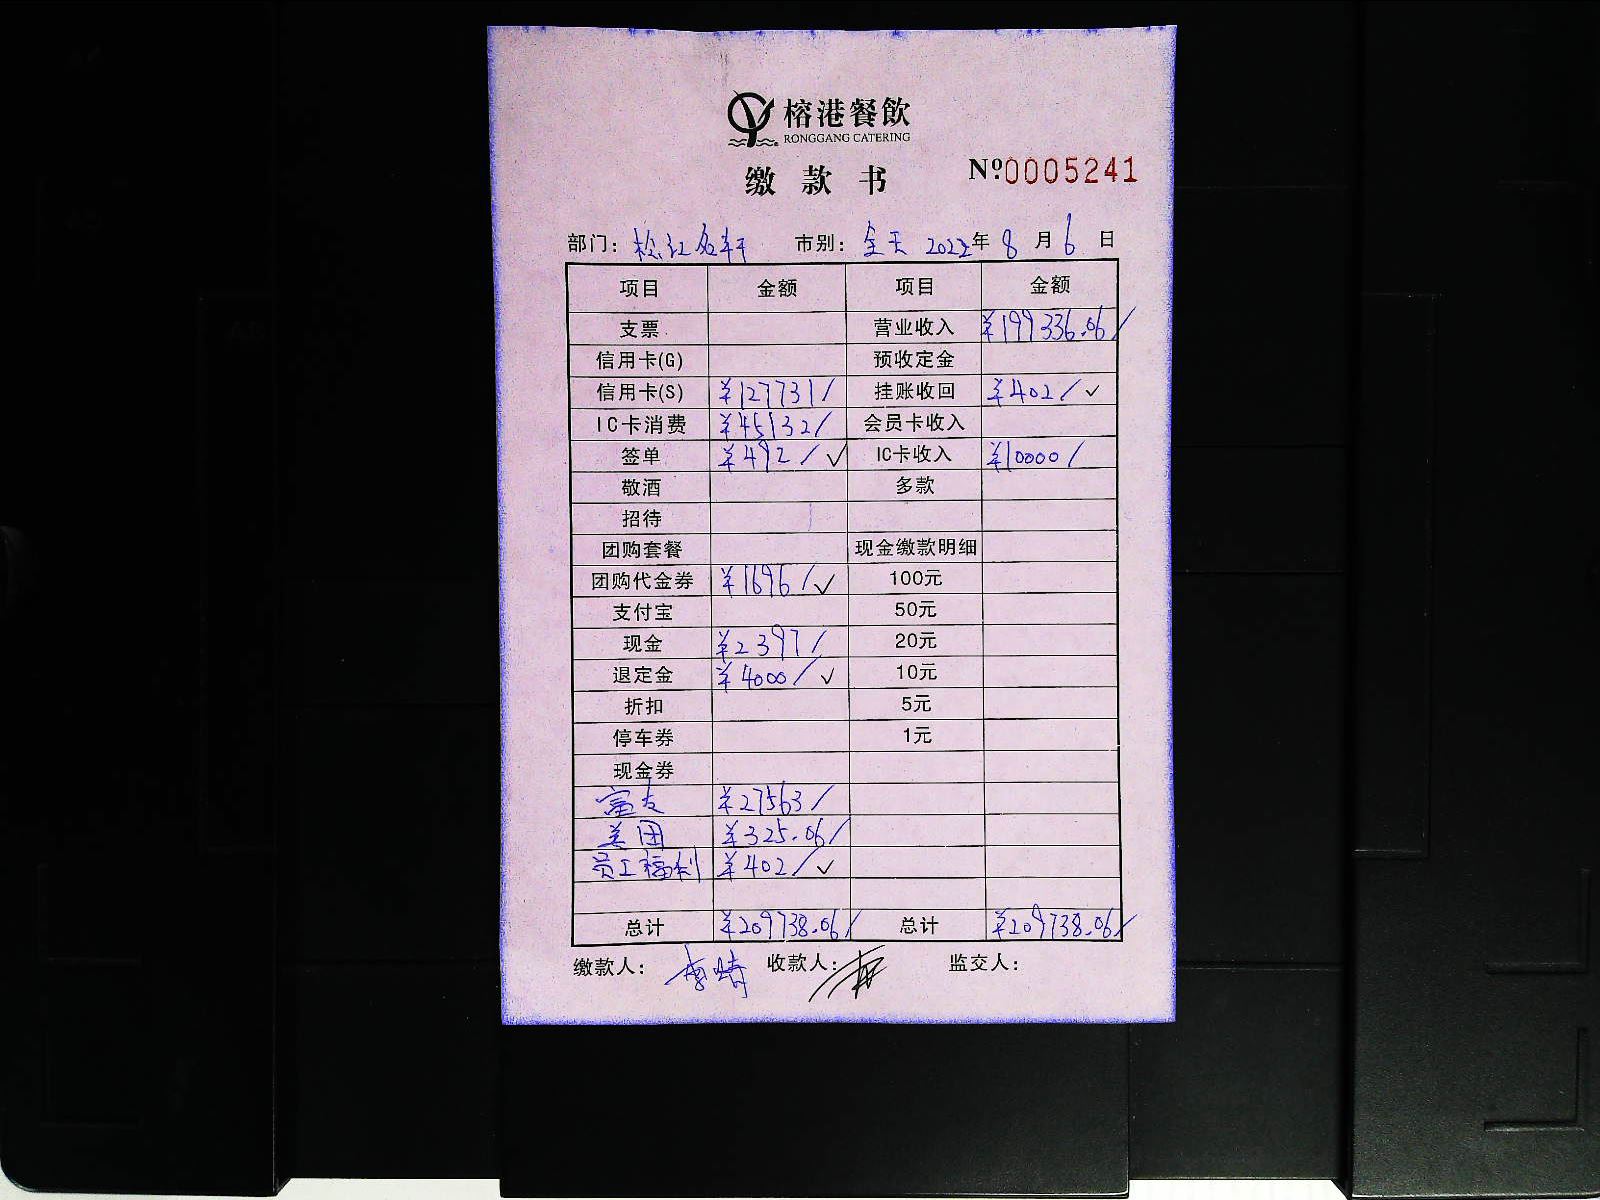 榕港餐飲
RONGGANG CATERING
缴款书 Nº:0005241
部门: 松江名轩 市别: 全天 2022年 8月6日
项目 金额 项目 金额
支票 营业收入 ¥199336.06/
信用卡(G) 预收定金
信用卡(S) ¥127731/ 挂账收回 ¥402/ ✓
IC卡消费 ¥45132/ 会员卡收入
签单 ¥492/ ✓ IC卡收入 ¥10000/
敬酒 多款
招待
团购套餐 现金缴款明细
团购代金券 ¥1696/ ✓ 100元
支付宝 50元
现金 ¥2397/ 20元
退定金 ¥4000/ ✓ 10元
折扣 5元
停车券 1元
现金券
富友 ¥27563/
美团 ¥325.06/
员工福利 ¥402/ ✓
总计 ¥209738.06/ 总计 ¥209738.06/
缴款人: 收款人: 监交人: